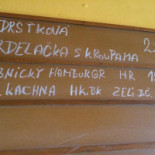 DRŠTKOVÁ 2
RDELAČKA S KROUPAMA
BNICKÝ HAMBURGR HR 1
KACHNA HK.DK ZELÍ